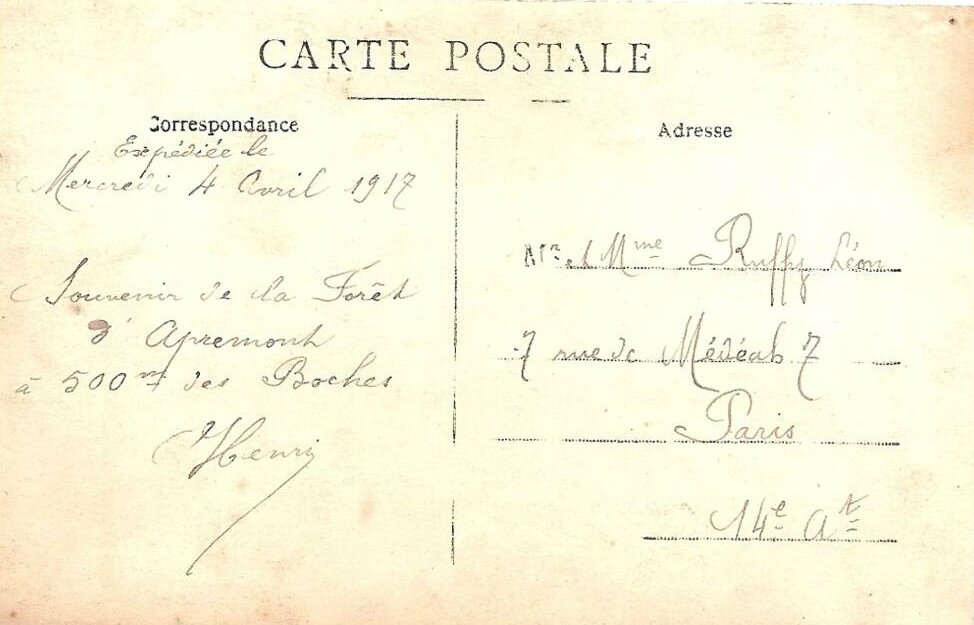 CARTE POSTALE
Correspondance
Expédiée le
Mercredi 4 Avril 1917
Souvenir de la Forêt
d'Apremont
à 500m des Boches
Henri
Adresse
Mr et Mme Ruffy Léon
7 rue de Médéah 7
Paris
14e At